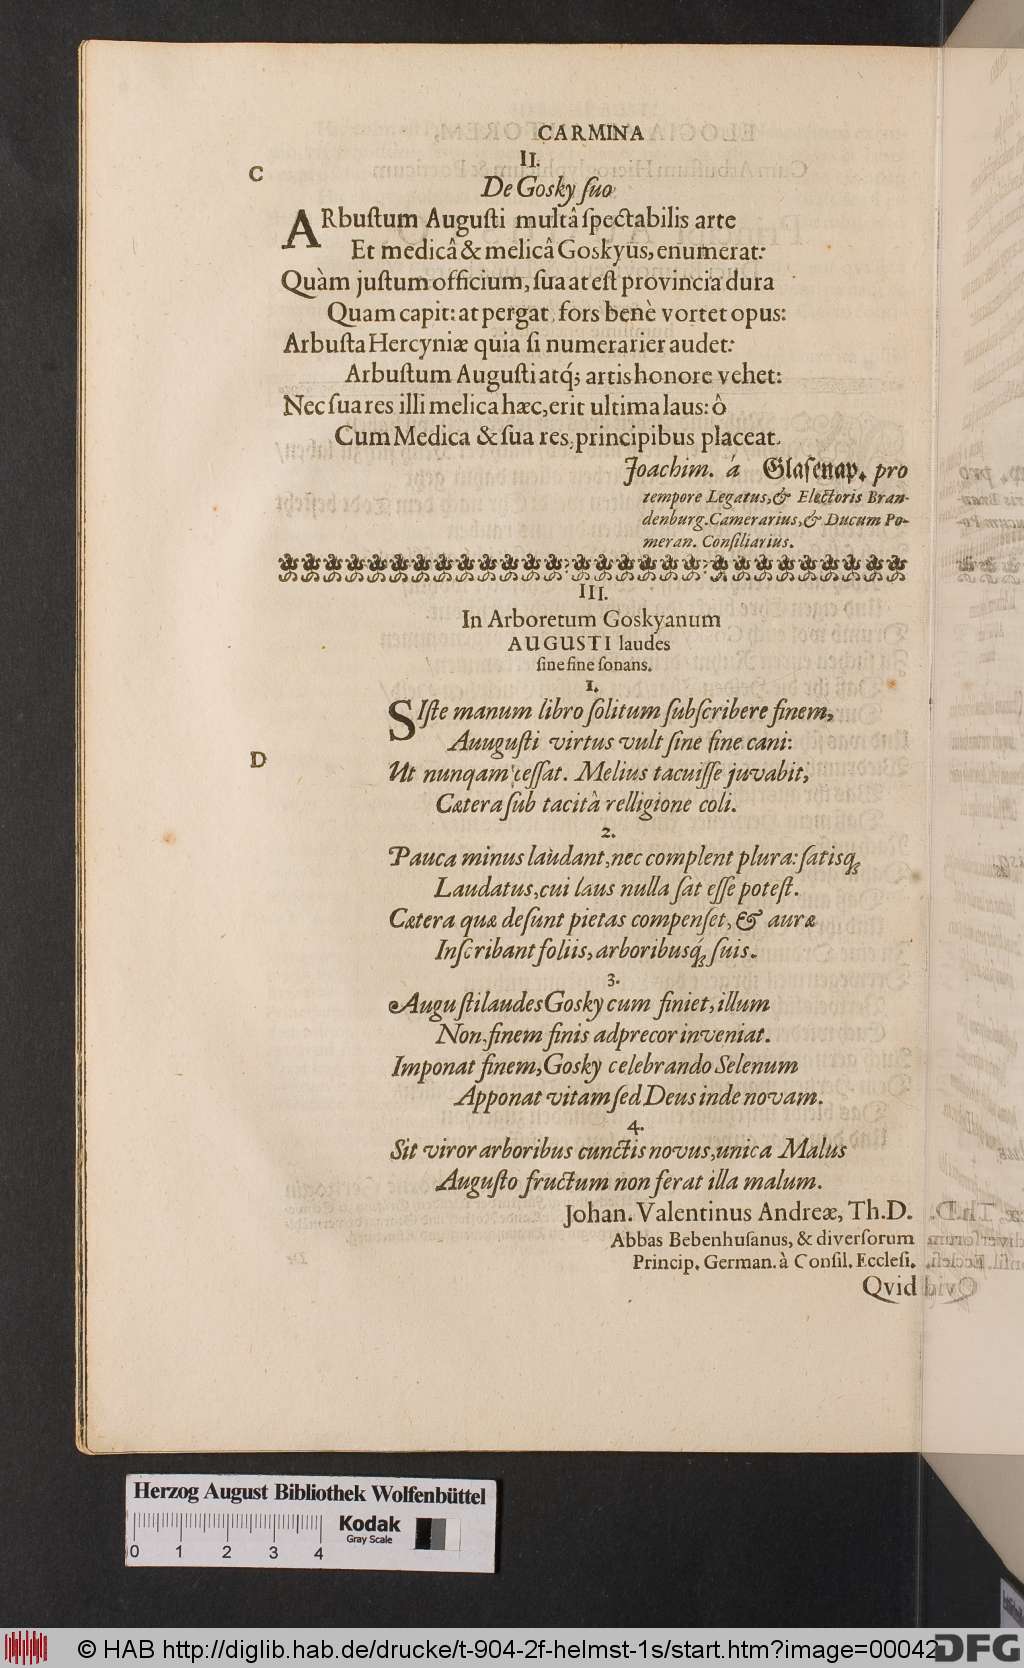 CARMINA
II.
C
De Gosky ſuo
ARbuſtum Auguſti multâ ſpectabilis arte
Et medicâ & melicâ Goskyus, enumerat:
Quàm juſtum officium, ſua at eſt provincia dura
Quam capit: at pergat, fors benè vortet opus:
Arbuſta Hercyniæ quia ſi numerarier audet:
Arbuſtum Auguſti atq́; artis honore vehet:
Nec ſua res illi melica hæc, erit ultima laus: ô
Cum Medica & ſua res, principibus placeat.
Joachim. á Glaſenap. pro
tempore Legatus, & Electoris Bran-
denburg. Camerarius, & Ducum Po-
meran. Conſiliarius.
III.
In Arboretum Goskyanum
AUGUSTI laudes
ſine fine ſonans.
1.
SIſte manum libro ſolitum ſubſcribere finem,
Auuguſti virtus vult ſine fine cani:
D
Ut nunqam ceſſat. Melius tacuiſſe juvabit,
Cætera ſub tacitâ relligione coli.
2.
Pauca minus laudant, nec complent plura: ſatisq;
Laudatus, cui laus nulla ſat eſſe poteſt.
Cætera quæ deſunt pietas compenſet, & auræ
Inſcribant foliis, arboribusq́; ſuis.
3.
Auguſti laudes Gosky cum finiet, illum
Non, finem finis adprecor inveniat.
Imponat finem, Gosky celebrando Selenum
Apponat vitam ſed Deus inde novam.
4.
Sit viror arboribus cunctis novus, unica Malus
Auguſto fructum non ferat illa malum.
Johan. Valentinus Andreæ, Th. D.
Abbas Bebenhuſanus, & diverſorum
Princip. German. à Conſil. Eccleſi.
Qvid
Herzog August Bibliothek Wolfenbüttel
Kodak
Gray Scale
0 1 2 3 4
© HAB http://diglib.hab.de/drucke/t-904-2f-helmst-1s/start.htm?image=00042
DFG